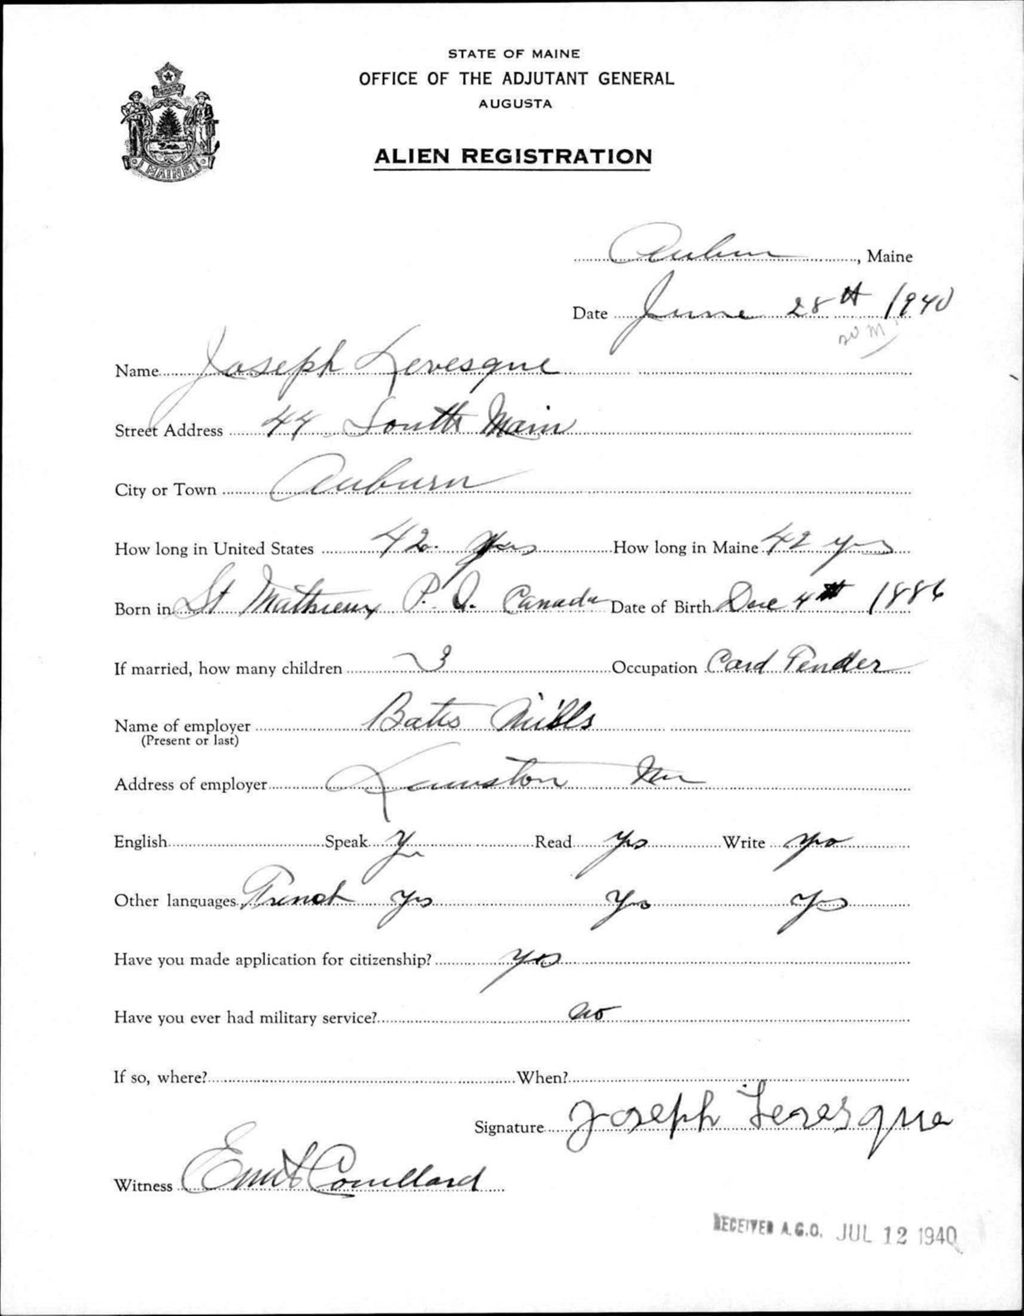 STATE OF MAINE
OFFICE OF THE ADJUTANT GENERAL
AUGUSTA
MAINE
ALIEN REGISTRATION
Auburn, Maine
Date June 28th 1940
Name Joseph Levesque
Street Address 44 South Main
City or Town Auburn
How long in United States 42 yrs How long in Maine 42 yrs
Born in St Mathieux P. Q. Canada Date of Birth Dec 4th 1886
If married, how many children 3 Occupation Card Tender
Name of employer Bates Mills
(Present or last)
Address of employer Lewiston Me
English Speak Yes Read yes Write yes
Other languages French yes yes yes
Have you made application for citizenship? yes
Have you ever had military service? no
If so, where? When?
Signature Joseph Levesque
Witness Couillard
RECEIVED A.G.O. JUL 12 1940